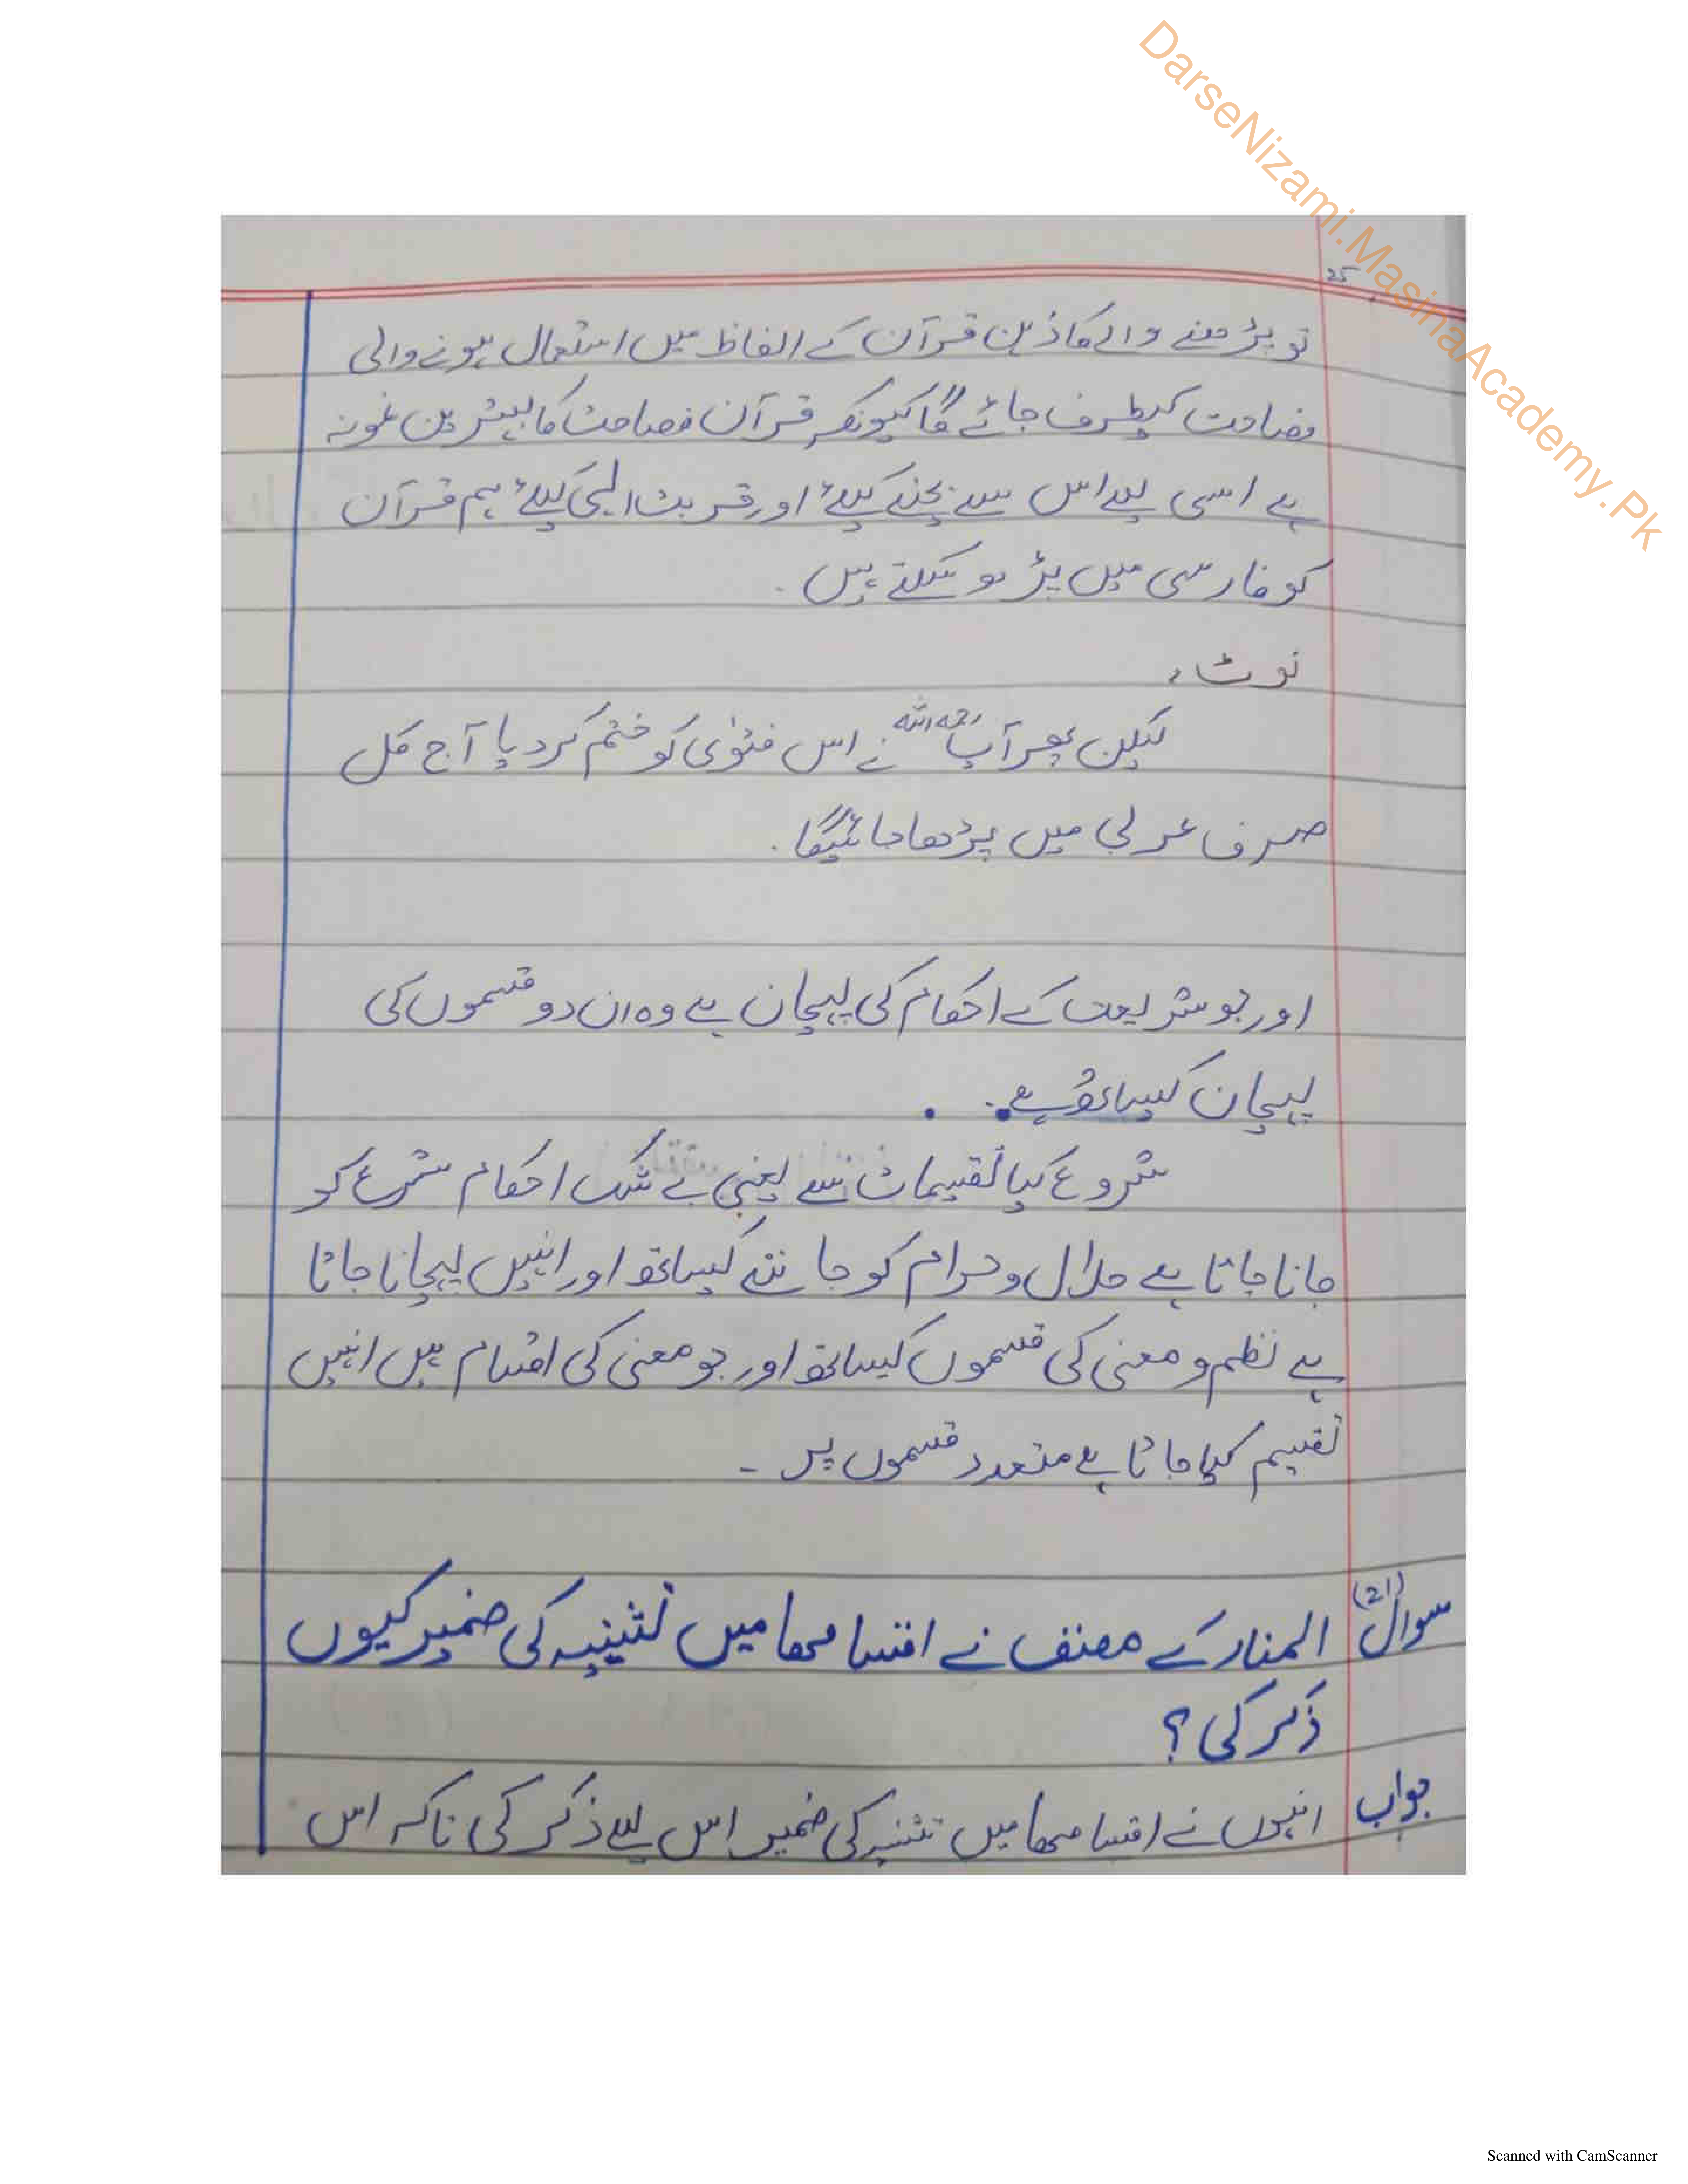 DarseNizami.MasinaAcademy.Pk
25
تو پڑھنے والے کا ذہن قرآن کے الفاظ میں استعمال ہونے والی
فصاحت کیطرف جائے گا کیونکہ قرآن فصاحت کا بہترین نمونہ
ہے اسی لیے اس سے بچنے کیلئے اور قربت الہی کیلئے ہم قرآن
کو فارسی میں پڑھ سکتے ہیں۔
نوٹ،
لیکن پھر آپ رحمہ اللہ نے اس فتوٰی کو ختم کر دیا آج کل
صرف عربی میں پڑھا جائیگا۔
اور جو شریعت کے احکام کی پہچان ہے وہ ان دو قسموں کی
پہچان کیساتھ ہے۔
شروع کیا تقسیمات سے یعنی بے شک احکام شرع کو
جانا جاتا ہے حلال و حرام کو جاننے کیساتھ اور انہیں پہچانا جاتا
ہے نظم و معنی کی قسموں کیساتھ اور جو معنی کی اقسام ہیں انہیں
تقسیم کیا جاتا ہے متعدد قسموں پر ۔
سوال (21) المنار کے مصنف نے اقسامھما میں تثنیہ کی ضمیر کیوں
ذکر کی ؟
جواب انہوں نے اقسامھما میں تثنیہ کی ضمیر اس لیے ذکر کی تاکہ اس
Scanned with CamScanner